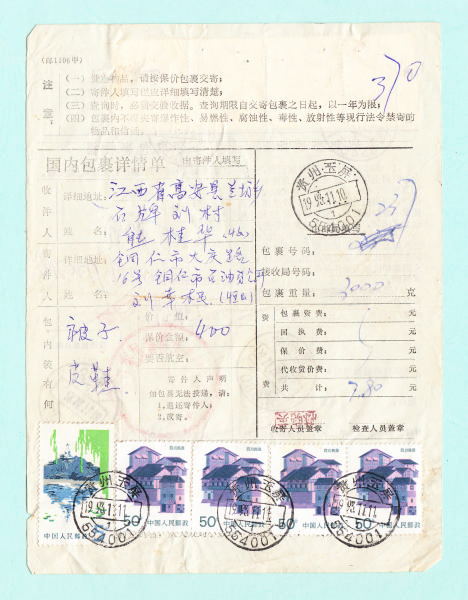 (邮1106甲)
370
注意:
(一) 贵重物品,请按保价包裹交寄;
(二) 寄件人填写巴应详细填写清楚;
(三) 查询时,必须交验收据。查询期限自交寄包裹之日起,以一年为限;
(四) 包裹内不得夹寄爆炸性、易燃性、腐蚀性、毒性、放射性等现行法令禁寄的
物品和信函。
国内包裹详情单 由寄件人填写
贵州·玉屏
19
11.10
554001
收件人
详细地址:江西省高安县
石 刘村
姓名:熊桂华
寄件人
详细地址:铜仁市大庆路
16号铜仁市石油
姓名:刘幸
包裹号码:
接收局号码:
包裹重量:3000 克
包内装有何
被子
皮鞋
价 值:
保价金额:400
要否航空:
寄件人声明
如包裹无法投递,请:
1.退还寄件人;
2.改寄。
费 包裹资费: 元
回执费: 元
保价费: 元
代收货价费: 元
费 共计:7.80 元
收寄人员盖章
检查人员盖章
四川民居
四川民居
四川民居
四川民居
50
50
50
50
中国人民邮政
中国人民邮政
中国人民邮政
中国人民邮政
中国人民邮政
贵州·玉屏
554001
贵州·玉屏
554001